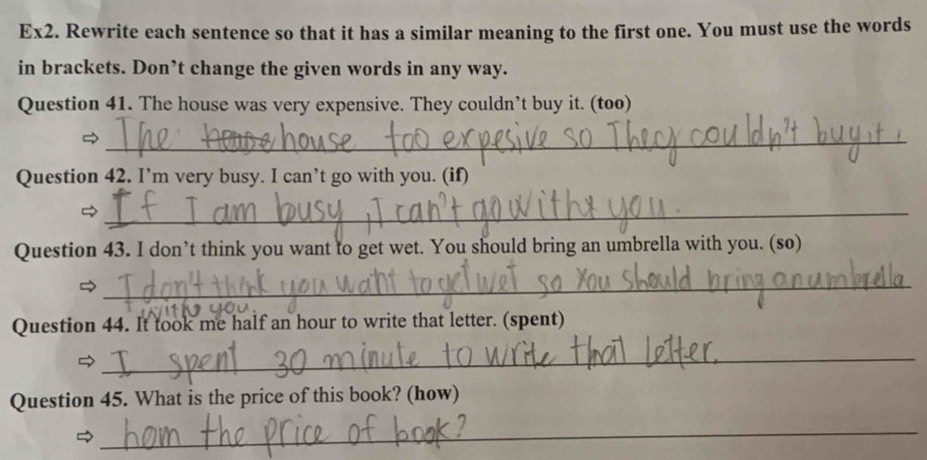 Ex2. Rewrite each sentence so that it has a similar meaning to the first one. You must use the words
in brackets. Don't change the given words in any way.
Question 41. The house was very expensive. They couldn't buy it. (too)
⇨ The house too expesive so They couldn't buy it.
Question 42. I'm very busy. I can't go with you. (if)
⇨ If I am busy, I can't go with you.
Question 43. I don't think you want to get wet. You should bring an umbrella with you. (so)
⇨ I don't think you want to get wet so You should bring an umbrella
with you.
Question 44. It took me half an hour to write that letter. (spent)
⇨ I spent 30 minute to write that letter.
Question 45. What is the price of this book? (how)
⇨ hom the price of book?